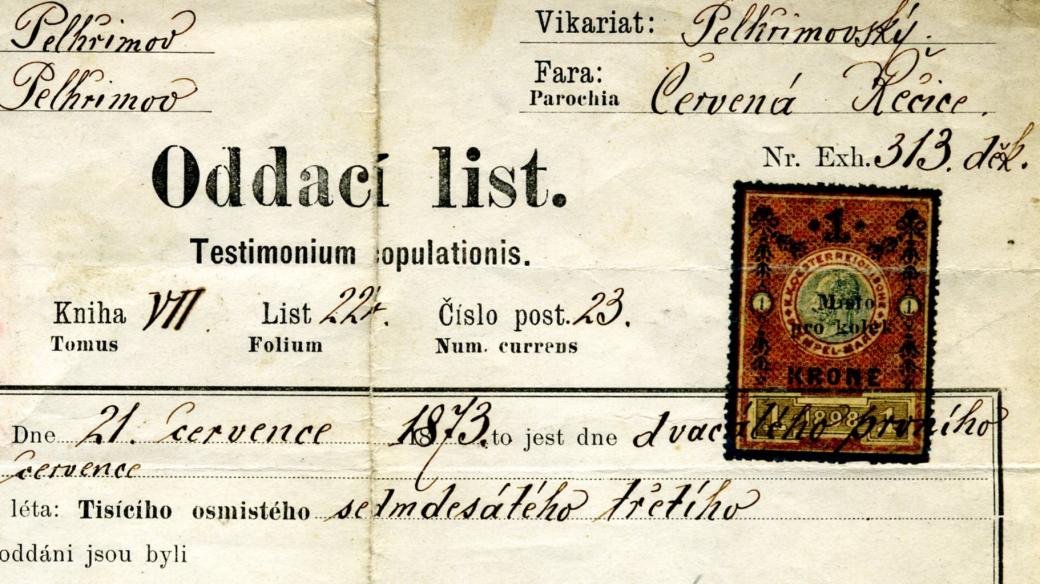 Pelhřimov
Vikariat: Pelhřimovský.
Pelhřimov
Fara: Červená Řečice.
Parochia
Nr. Exh. 313. děk.
Oddací list.
Testimonium copulationis.
Kniha VII. List 224. Číslo post. 23.
Tomus Folium Num. currens
1
K.K. OESTERREICHISCHE STEMPEL-MARKE
1 1
Místo
pro kolek
KRONE
1 1898 1
Dne 21. července 1873. to jest dne dvacátého prvního
července
léta: Tisícího osmistého sedmdesátého třetího
oddáni jsou byli